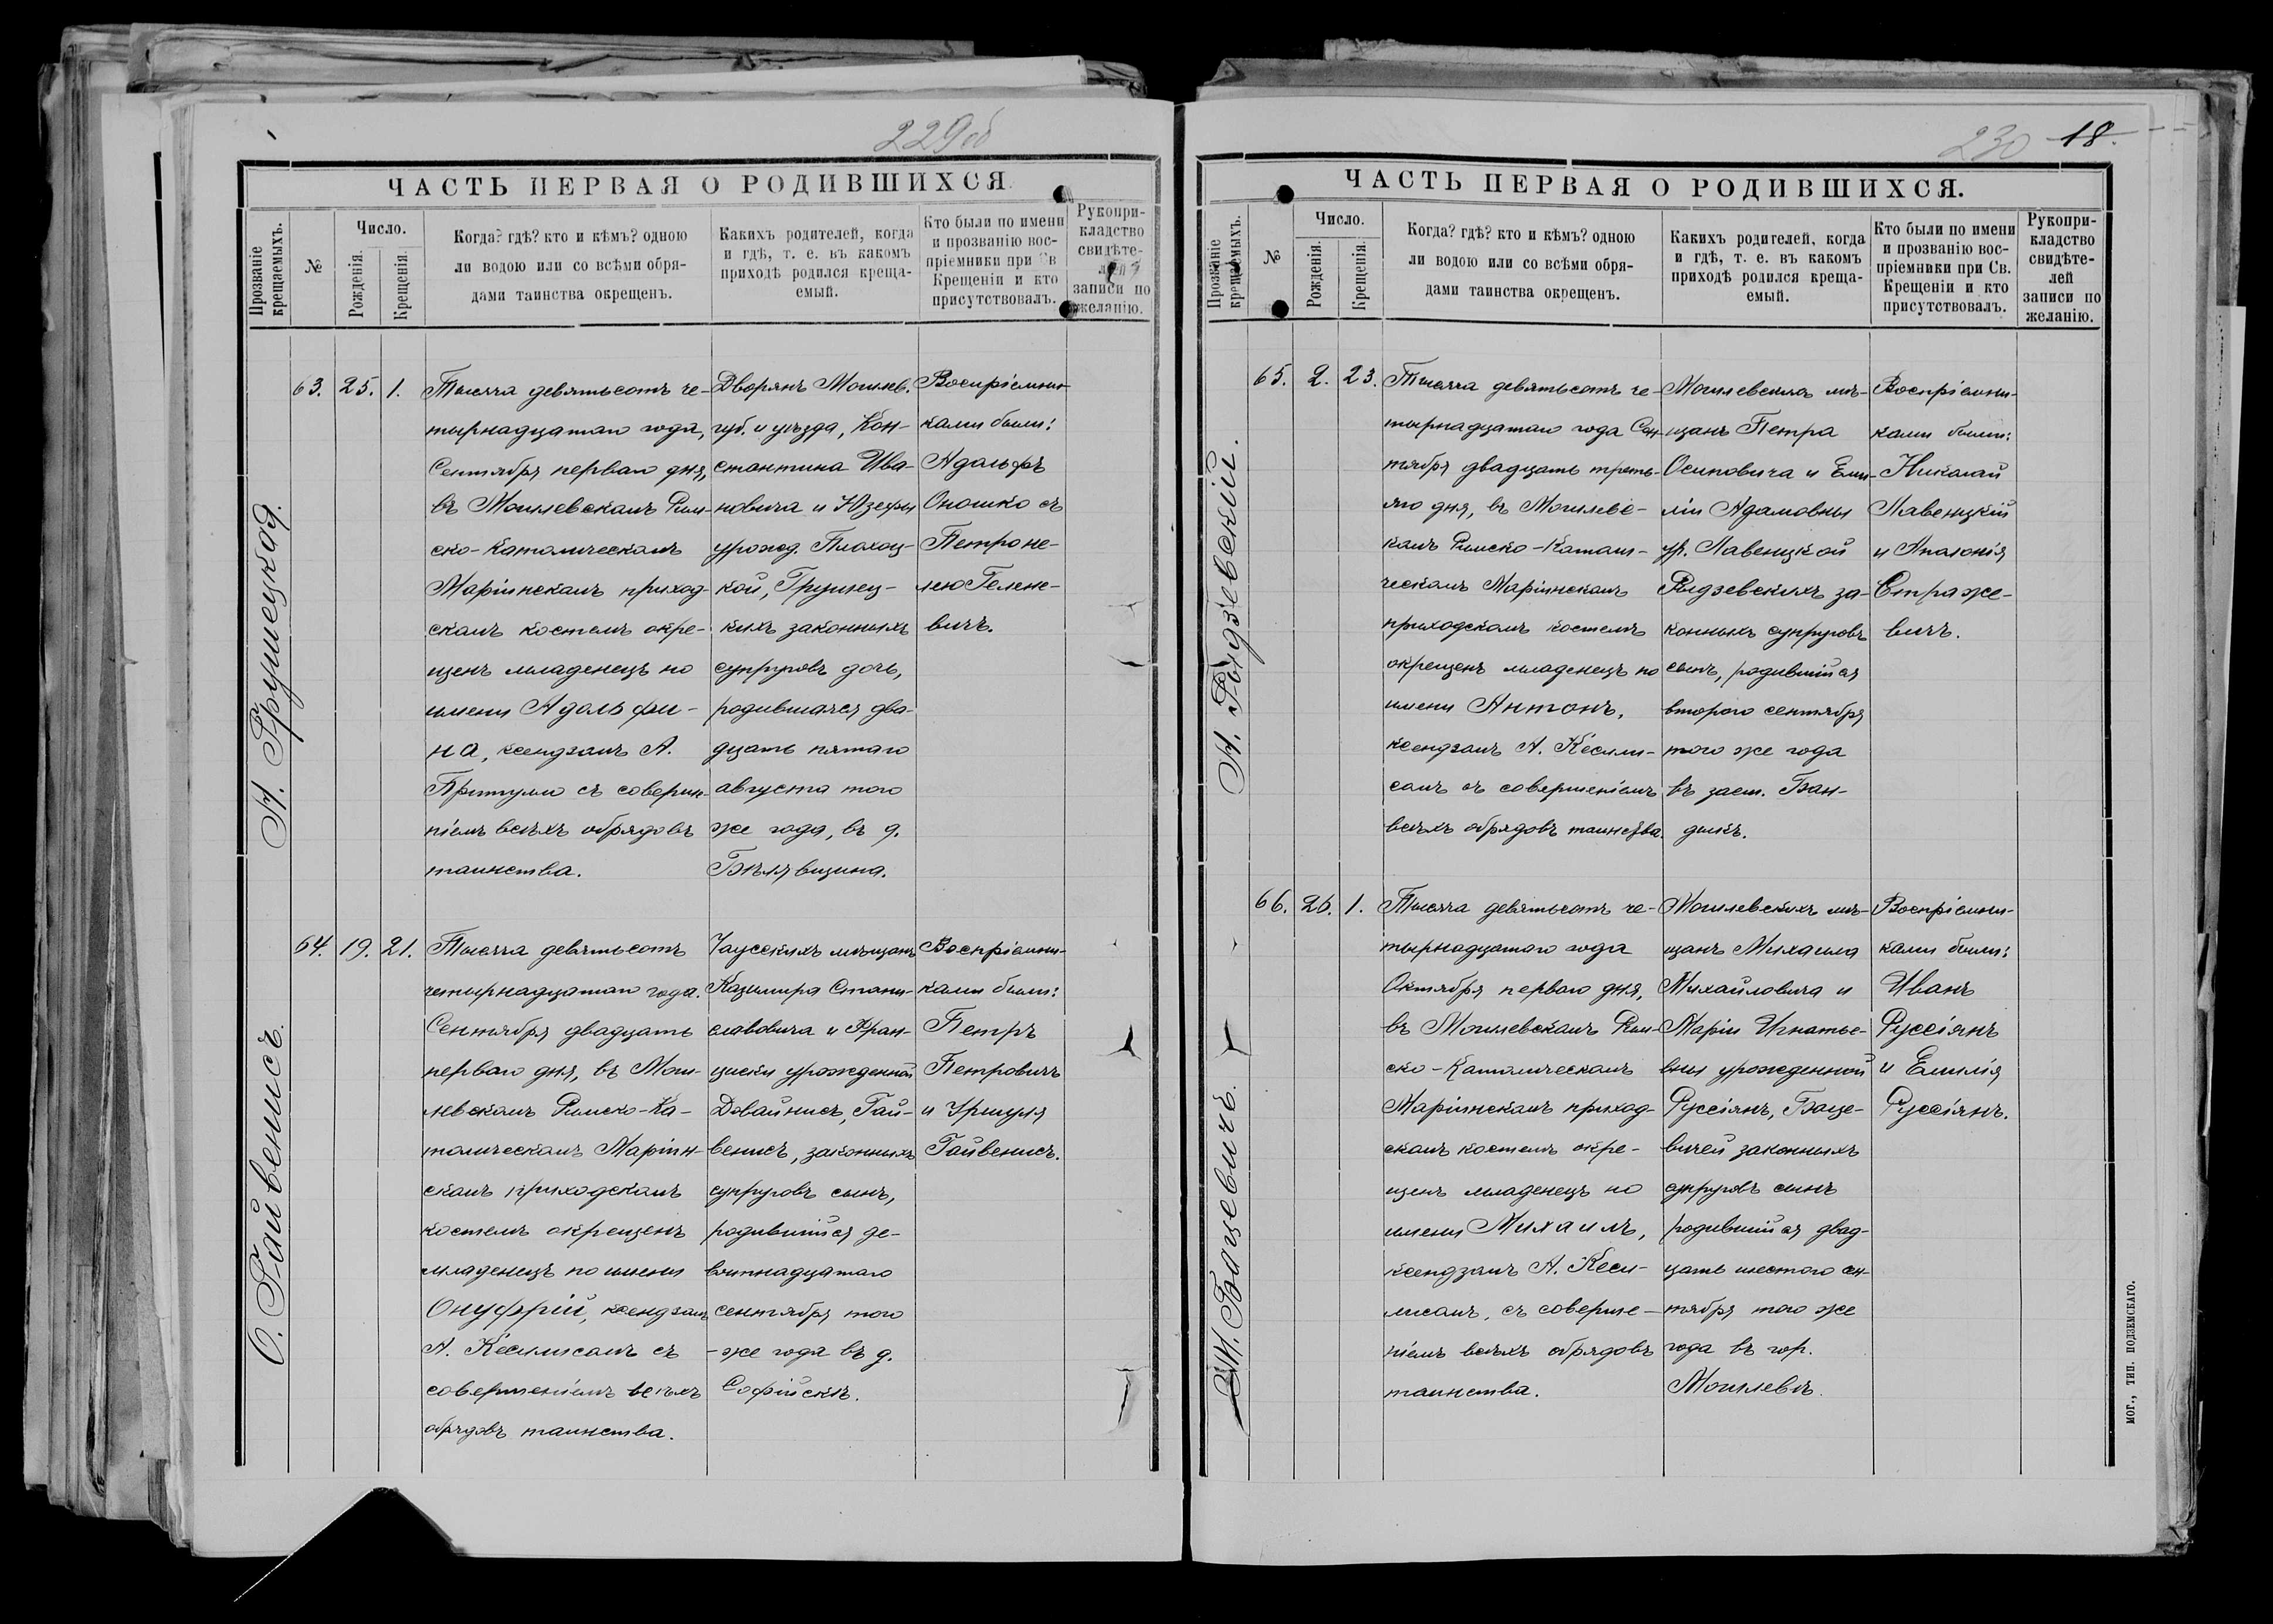 229об
ЧАСТЬ ПЕРВАЯ О РОДИВШИХСЯ
Прозваніе крещаемыхъ.
№
Число.
Рожденія.
Крещенія.
Когда? гдѣ? кто и кѣмъ? одною
ли водою или со всѣми обря-
дами таинства окрещенъ.
Какихъ родителей, когда
и гдѣ, т. е. въ какомъ
приходѣ родился креща-
емый.
Кто были по имени
и прозванію вос-
пріемники при Св
Крещеніи и кто
присутствовалъ.
Рукопри-
кладство
свидѣте-
лей
записи по
желанію.
А. Грушецкая.
63. 25. 1.
Тысяча девятьсотъ че-
тырнадцатаго года,
Сентября перваго дня,
въ Могилевскомъ Рим-
ско-Католическомъ
Маріинскомъ приход-
скомъ костелѣ окре-
щенъ младенецъ по
имени Адольфи-
на, ксендзомъ А.
Притуло съ соверше-
ніемъ всѣхъ обрядовъ
таинства.
Дворянъ Могилев.
губ. и уѣзда, Кон-
стантина Ива-
новича и Юзефы
урожд. Плохоц-
кой, Грушец-
кихъ законныхъ
супруговъ дочь,
родившаяся два-
дцать пятаго
августа того
же года, въ д.
Бѣлявщина.
Воспріемни-
ками были:
Адольфъ
Оношко съ
Петроне-
лею Гелене-
вичъ.
О. Гайвенисъ.
64. 19. 21.
Тысяча девятьсотъ
четырнадцатаго года.
Сентября двадцать
перваго дня, въ Моги-
левскомъ Римско-Ка-
толическомъ Маріин-
скомъ приходскомъ
костелѣ окрещенъ
младенецъ по имени
Онуфрій, ксендзомъ
А. Кесилисомъ съ
совершеніемъ всѣхъ
обрядовъ таинства.
Чаусскихъ мѣщанъ
Казимира Стани-
славовича и Фран-
циски урожденной
Довайнисъ, Гай-
венисъ, законныхъ
супруговъ сынъ,
родившійся де-
вятнадцатаго
сентября того
-же года въ д.
Софійскѣ.
Воспріемни-
ками были:
Петръ
Петровичъ
и Уршуля
Гайвенисъ.
230 18.
ЧАСТЬ ПЕРВАЯ О РОДИВШИХСЯ.
Прозваніе крещаемыхъ.
№
Число.
Рожденія.
Крещенія.
Когда? гдѣ? кто и кѣмъ? одною
ли водою или со всѣми обря-
дами таинства окрещенъ.
Какихъ родителей, когда
и гдѣ, т. е. въ какомъ
приходѣ родился креща-
емый.
Кто были по имени
и прозванію вос-
пріемники при Св.
Крещеніи и кто
присутствовалъ.
Рукопри-
кладство
свидѣте-
лей
записи по
желанію.
А. Рыдзевскій.
65. 2. 23.
Тысяча девятьсотъ че-
тырнадцатаго года Сен-
тября двадцать треть-
яго дня, въ Могилевс-
комъ Римско-Католи-
ческомъ Маріинскомъ
приходскомъ костелѣ
окрещенъ младенецъ по
имени Антонъ,
ксендзомъ А. Кесили-
сомъ съ совершеніемъ
всѣхъ обрядовъ таинства.
Могилевскихъ мѣ-
щанъ Петра
Осиповича и Еми-
ліи Адамовны
ур. Лавеицкой
Рыдзевскихъ за-
конныхъ супруговъ
сынъ, родившійся
второго сентября
того же года
въ заст. Бан-
дыкѣ.
Воспріемни-
ками были:
Николай
Лавеицкій
и Аполонія
Страже-
вичъ.
М. Бацевичъ.
66. 26. 1.
Тысяча девятьсотъ че-
тырнадцатаго года
Октября перваго дня,
въ Могилевскомъ Рим-
ско-Католическомъ
Маріинскомъ приход-
скомъ костелѣ окре-
щенъ младенецъ по
имени Михаилъ,
ксендзомъ А. Кеси-
лисомъ, съ соверше-
ніемъ всѣхъ обрядовъ
таинства.
Могилевскихъ мѣ-
щанъ Михаила
Михайловича и
Маріи Игнатье-
вны урожденной
Руссіянъ, Баце-
вичей законныхъ
супруговъ сынъ
родившійся двад-
цать шестого сен-
тября того же
года въ гор.
Могилевѣ.
Воспріемни-
ками были:
Иванъ
Руссіянъ
и Емилія
Руссіянъ.
МОГ., ТИП. ПОДЗЕМСКАГО.